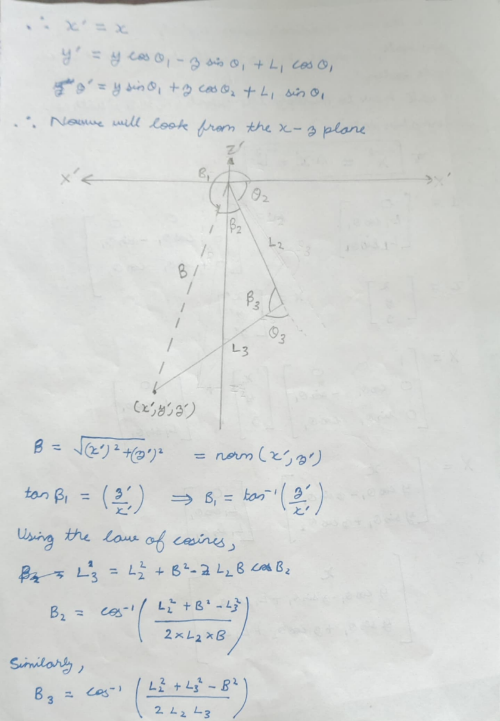 ∴ x' = x
y' = y cosθ₁ - z sinθ₁ + L₁ cosθ₁
z' = y sinθ₁ + z cosθ₂ + L₁ sinθ₁
∴ Now we will look from the x - z plane
z'
x'
B₁
x'
θ₂
β₂
L₂
B
β₃
θ₃
L₃
(x', y', z')
B = √(x')² + (z')² = norm (x', z')
tan β₁ = (z'/x') ⇒ B₁ = tan⁻¹ (z'/x')
Using the law of cosines,
L₃² = L₂² + B² - 2 L₂ B cos B₂
B₂ = cos⁻¹ ( (L₂² + B² - L₃²) / (2 × L₂ × B) )
Similarly,
B₃ = cos⁻¹ ( (L₂² + L₃² - B²) / (2 L₂ L₃) )